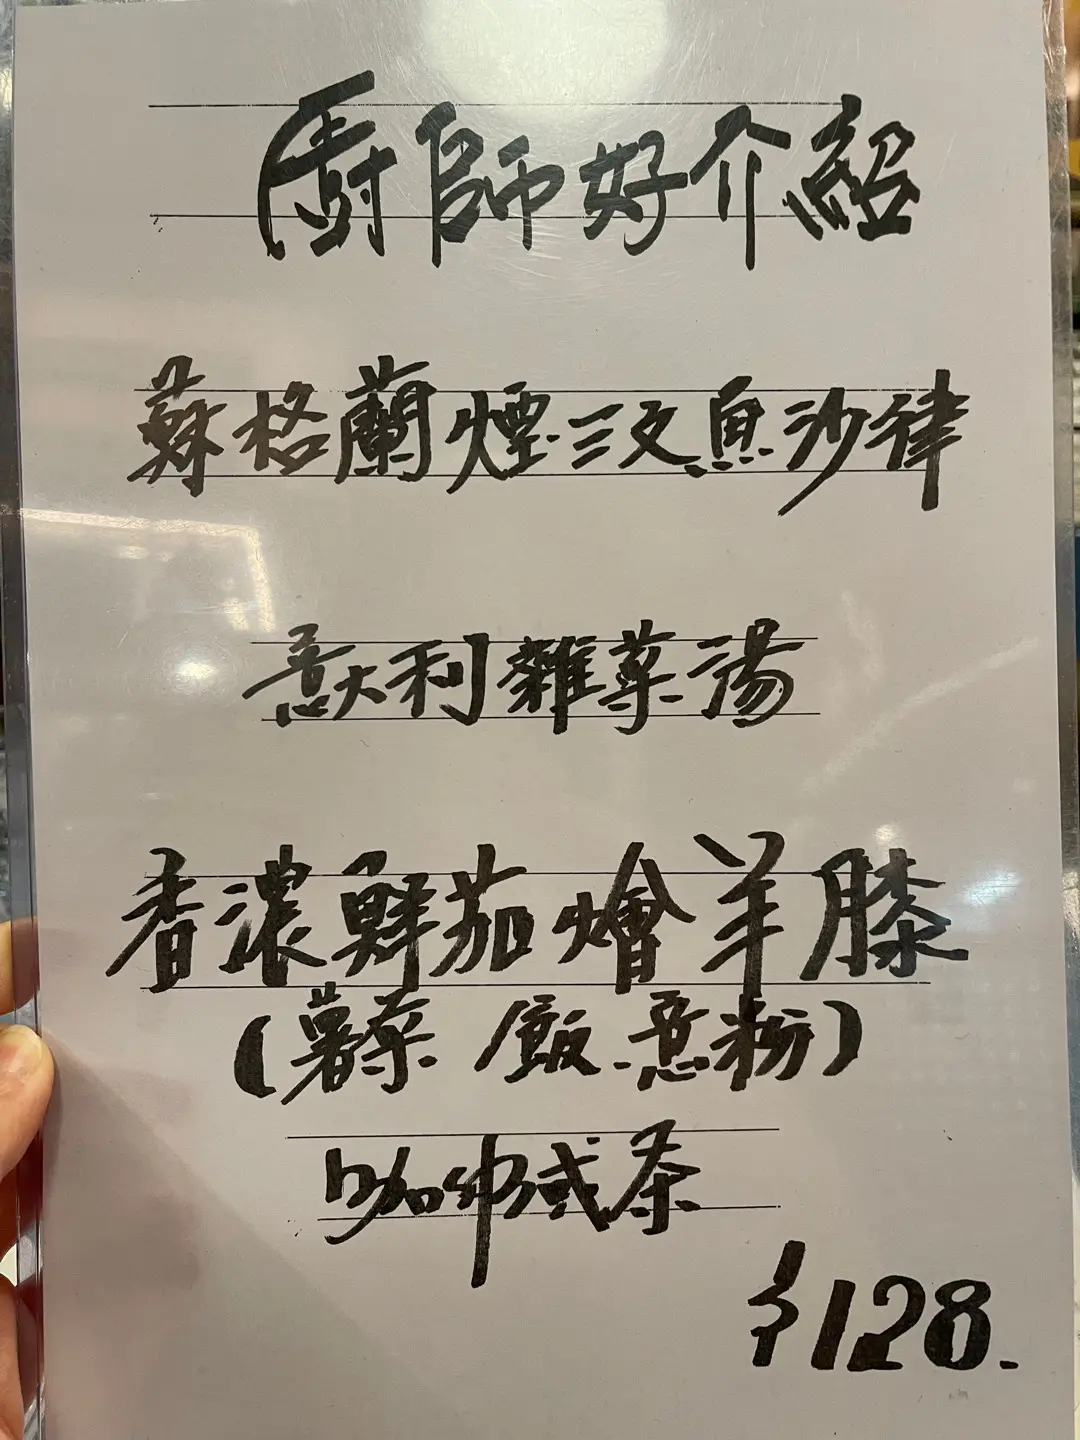 廚師好介紹
蘇格蘭煙三文魚沙律
意大利雜菜湯
香濃鮮茄燴羊膝
(薯菜 飯 意粉)
咖啡或茶
$128.